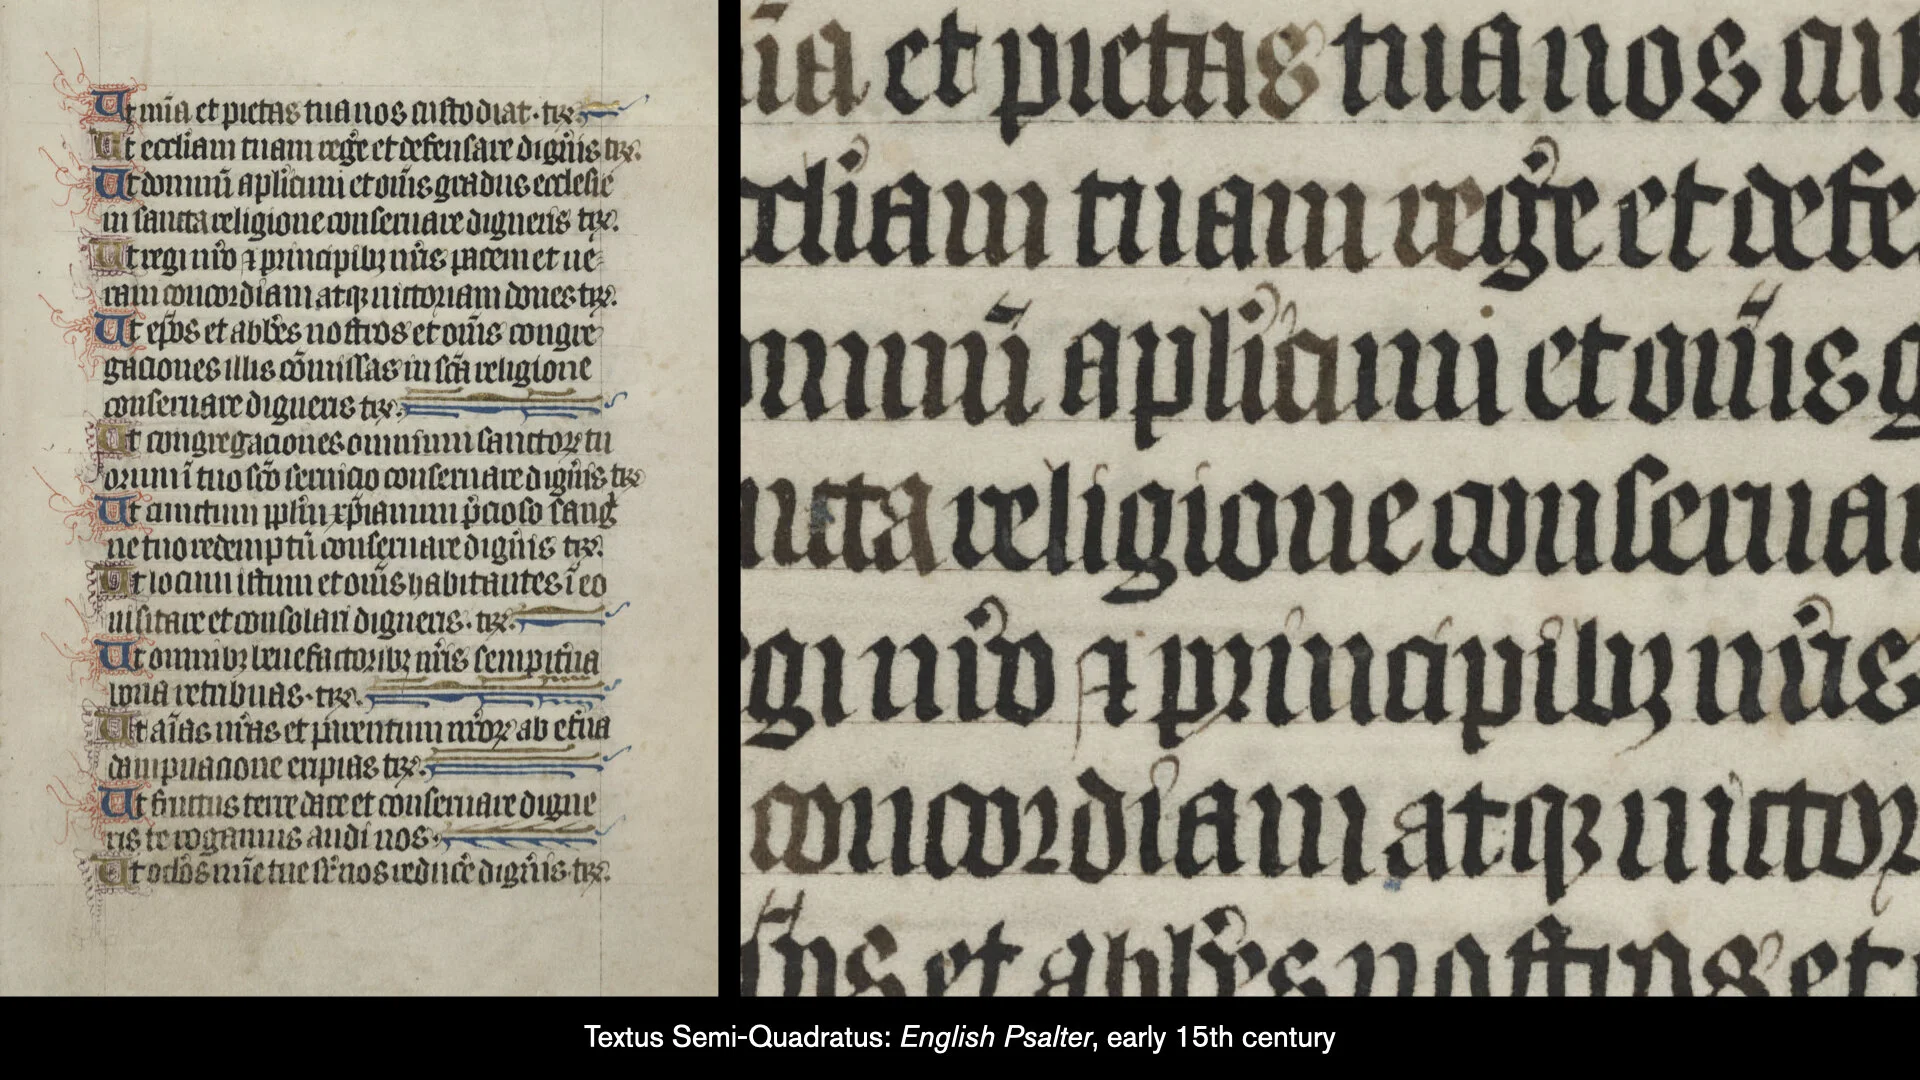 Ut mĩa et pietas tua nos custodiat · tex̄
Ut eccliam tuam reg̾e et defensare dign̾is tex̄.
Ut domnũ aplicũ et om̃is gradus ecclesie
in sancta religione conseruare digneris tex̄.
Ut regi nr̃o ⁊ principibꝫ nr̃is pacem et ue-
ram concordiam atqꝫ uictoriam dones tex̄.
Ut ep̃os et abb̃es nostros et om̃is congre
gaciones illis cõmissas in sc̃a religione
conseruare digneris tex̄.
Ut congregaciones omnium sanctoꝝ tu
orum ĩ tuo sc̃o seruicio conseruare dign̾is tex̄
Ut cunctum pplm̃ xp̃ianum p̾cioso sang
ne tuo redemptũ conseruare dign̾is tex̄.
Ut locum istum et om̃is habitantes ĩ eo
uisitare et consolari digneris · tex̄.
Ut omnibꝫ benefactoribꝫ nr̃is sempit̾na
bona retribuas · tex̄.
Ut aĩas nr̃as et parentum nr̃oꝝ ab et̾na
dampnacione eripias tex̄.
Ut fructus terre dare et conseruare digne
ris te rogamus audi nos ·
Ut oc̃los mĩe tue sr̾ nos reduc̾e dign̾is tex̄.
ĩa et pietas tua nos cus
ccliam tuam reg̾e et defe
omnũ aplicũ et om̃is g
ncta religione conseruar
gi nr̃o ⁊ principibꝫ nr̃is
concordiam atqꝫ uictor
ep̃os et abb̃es nostros et
Textus Semi-Quadratus: English Psalter, early 15th century